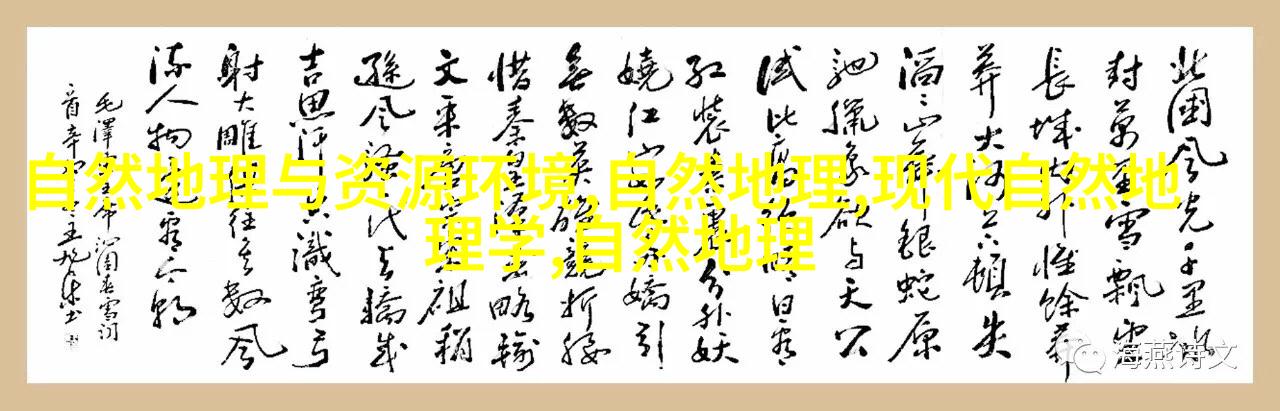 自然地理与资源环境,自然地理,现代自然地
理学,自然地理
北国风光千里冰
封萬里雪飄望
長城内外惟餘莽
莽大河上下頓失
滔滔山舞銀蛇原
馳臘象欲与天公
试比高 晴日看
红装素裹分外妖
嬈江山如此多嬌引
無数英雄競折腰
惜秦皇漢武略输
文采唐宗宋祖稍
遜风骚一代天驕成
吉思汗只識彎弓
射大雕俱往矣数风
流人物还看今朝
毛澤东主席沁园春雪词
海燕诗文